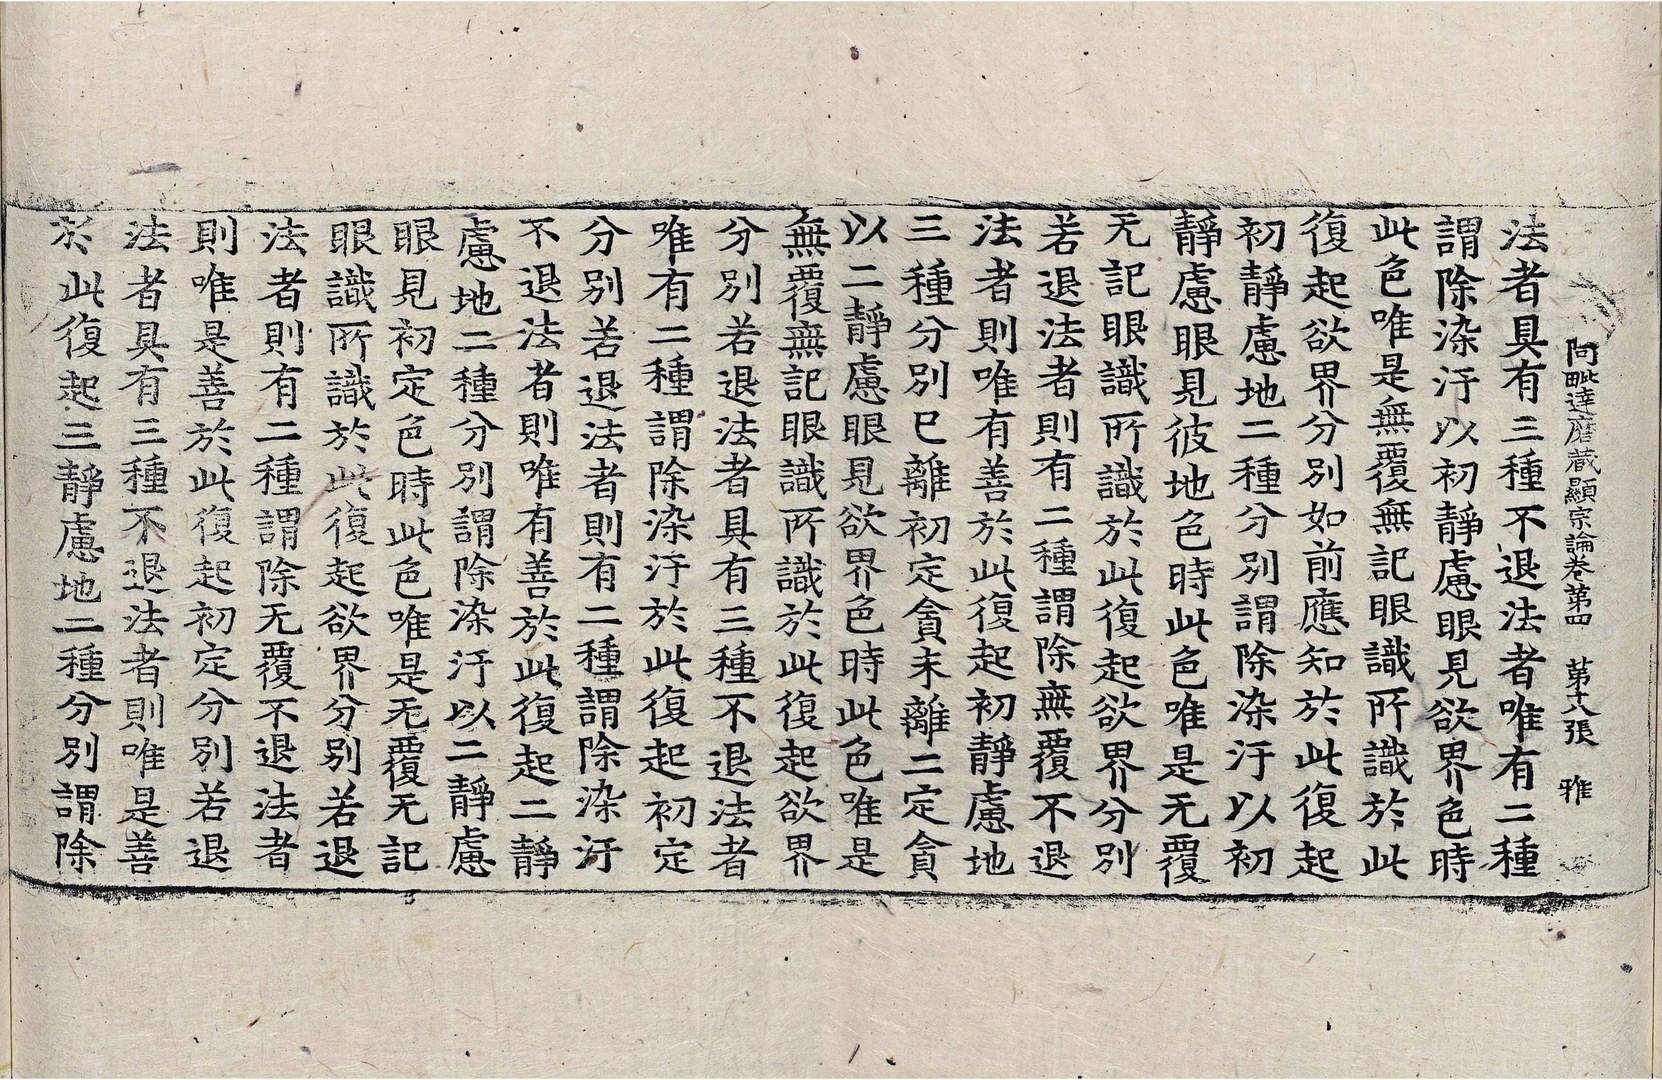 阿毗達磨藏顯宗論卷第四 第十八張 雅
法者具有三種不退法者唯有二種
謂除染汙以初靜慮眼見欲界色時
此色唯是無覆無記眼識所識於此
復起欲界分別如前應知於此復起
初靜慮地二種分別謂除染汙以初
靜慮眼見彼地色時此色唯是无覆
无記眼識所識於此復起欲界分別
若退法者則有二種謂除無覆不退
法者則唯有善於此復起初靜慮地
三種分別已離初定貪未離二定貪
以二靜慮眼見欲界色時此色唯是
無覆無記眼識所識於此復起欲界
分別若退法者具有三種不退法者
唯有二種謂除染汙於此復起初定
分別若退法者則有二種謂除染汙
不退法者則唯有善於此復起二靜
慮地二種分別謂除染汙以二靜慮
眼見初定色時此色唯是无覆无記
眼識所識於此復起欲界分別若退
法者則有二種謂除无覆不退法者
則唯是善於此復起初定分別若退
法者具有三種不退法者則唯是善
於此復起三靜慮地二種分別謂除